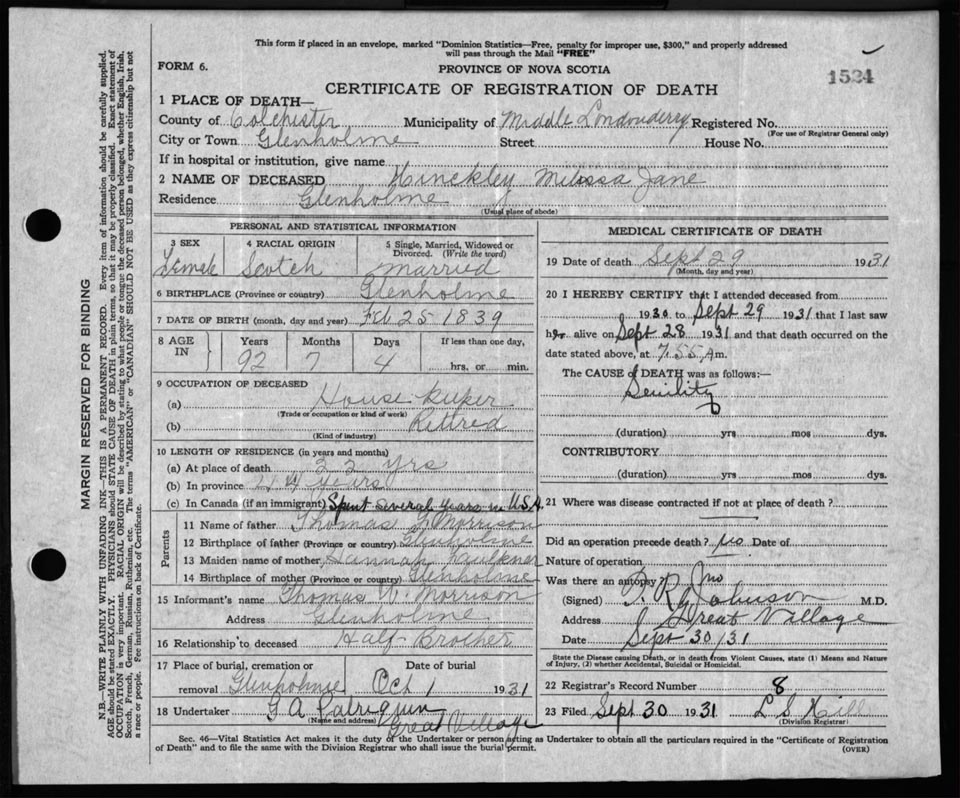 This form if placed in an envelope, marked "Dominion Statistics—Free, penalty for improper use, $300," and properly addressed
will pass through the Mail "FREE"
FORM 6.
PROVINCE OF NOVA SCOTIA
1524
CERTIFICATE OF REGISTRATION OF DEATH
1 PLACE OF DEATH—
County of Colchester Municipality of Middle Londonderry Registered No.
(For use of Registrar General only)
City or Town Glenholme Street House No.
If in hospital or institution, give name
2 NAME OF DECEASED Hinckley Melissa Jane
Residence Glenholme
(Usual place of abode)
PERSONAL AND STATISTICAL INFORMATION
3 SEX 4 RACIAL ORIGIN 5 Single, Married, Widowed or Divorced. (Write the word)
Female Scotch Married
6 BIRTHPLACE (Province or country) Glenholme
7 DATE OF BIRTH (month, day and year) Feb 25 1839
8 AGE IN Years Months Days If less than one day,
92 7 4 hrs. or min.
9 OCCUPATION OF DECEASED
(a) House keeper
(Trade or occupation or kind of work)
(b) Retired
(Kind of industry)
10 LENGTH OF RESIDENCE (in years and months)
(a) At place of death 22 yrs
(b) In province years
(c) In Canada (if an immigrant) Spent several years in U.S.A.
Parents
11 Name of father Thomas Morrison
12 Birthplace of father (Province or country) Glenholme
13 Maiden name of mother Hannah Faulkner
14 Birthplace of mother (Province or country) Glenholme
15 Informant's name Thomas Morrison
Address Glenholme
16 Relationship to deceased Half Brother
17 Place of burial, cremation or Date of burial
removal Glenholme Oct 1 1931
18 Undertaker G A Patriquin
(Name and address) Great Village
MEDICAL CERTIFICATE OF DEATH
19 Date of death Sept 29 1931
(Month, day and year)
20 I HEREBY CERTIFY that I attended deceased from
1930 to Sept 29 1931 that I last saw
her alive on Sept 28 1931 and that death occurred on the
date stated above, at 7.55 A m.
The CAUSE of DEATH was as follows:—
Senility
(duration) yrs mos dys.
CONTRIBUTORY
(duration) yrs mos dys.
21 Where was disease contracted if not at place of death?
Did an operation precede death? no Date of
Nature of operation
Was there an autopsy? no
(Signed) T. R. Johnson M.D.
Address Great Village
Date Sept 30/31
State the Disease causing Death, or in death from Violent Causes, state (1) Means and Nature
of Injury, (2) whether Accidental, Suicidal or Homicidal.
22 Registrar's Record Number 8
23 Filed Sept 30 1931 L S Hill
(Division Registrar)
Sec. 46—Vital Statistics Act makes it the duty of the Undertaker or person acting as Undertaker to obtain all the particulars required in the "Certificate of Registration
of Death" and to file the same with the Division Registrar who shall issue the burial permit.
(OVER)
MARGIN RESERVED FOR BINDING
N.B.—WRITE PLAINLY WITH UNFADING INK—THIS IS A PERMANENT RECORD. Every item of information should be carefully supplied.
AGE should be stated EXACTLY. PHYSICIANS should STATE CAUSE OF DEATH in plain terms, so that it may be properly classified. Exact statement of
OCCUPATION is very important. RACIAL ORIGIN will be described by stating to what people or tongue the deceased person belonged, whether English, Irish,
Scotch, French, German, Russian, Ruthenian, etc. The terms "AMERICAN" or "CANADIAN" SHOULD NOT BE USED as they express citizenship but not
a race or people. Fee instructions on back of Certificate.